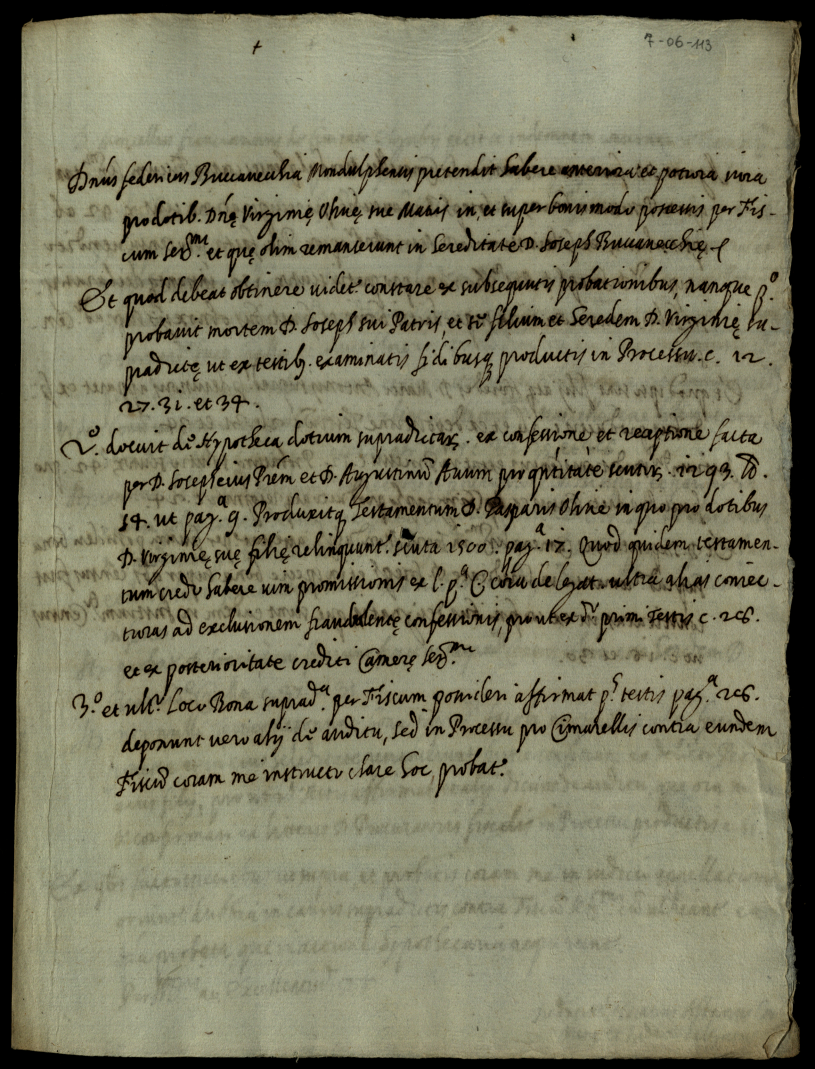 7-06-113
+
Dnus federicus Buccavecchia Mondulphensis pretendit habere anteriora et potiora iura
pro dotib. Dnę Virginię Olivę sue Matris in, et super bonis modo possessis per Fis-
cum Serᵐⁱ et quę olim remanserunt in hereditate D. Ioseph Buccavecchię
Et quod debeat obtinere videt.ʳ constare ex subsequutis probationibus, nanque pᵒ.
probavit mortem D. Ioseph sui Patris, et sē filium et heredem D. Virginię su-
pradictę ut ex testib. examinatis fidibusq productis in Processu. c. 12.
27. 31. et 34.
2ᵒ. docuit dē Hypotheca dotium supradictar. ex confessione et receptione facta
per D. Ioseph eius Prēm et D. Augustinū Avum pro qntitate scutor. 1293. bo.
14. ut pagᵃ 9. Produxitq Testamentum D. Gasparis Olivę in quo pro dotibus
D. Virginię suę filię relinquunt.ʳ scuta 1500. pagᵃ 17. Quod quidem testamen-
tum credo habere vim promissionis ex l. pᵃ C de legat. ultra alias coniec-
turas ad exclusionem fraudulentę confessionis, prout ex dᵒ primi Testis c. 26.
et ex posterioritate crediti Camerę Serᵐᵉ
3.ᵒ et ultᵒ. Loco Bona supradᵃ. per Fiscum possideri affirmat pˢ testis pagᵃ. 26.
deponunt vero alij dē auditu, sed in Processu pro Cimarellis contra eundem
Fiscū coram me instructo clare hoc probat.ʳ